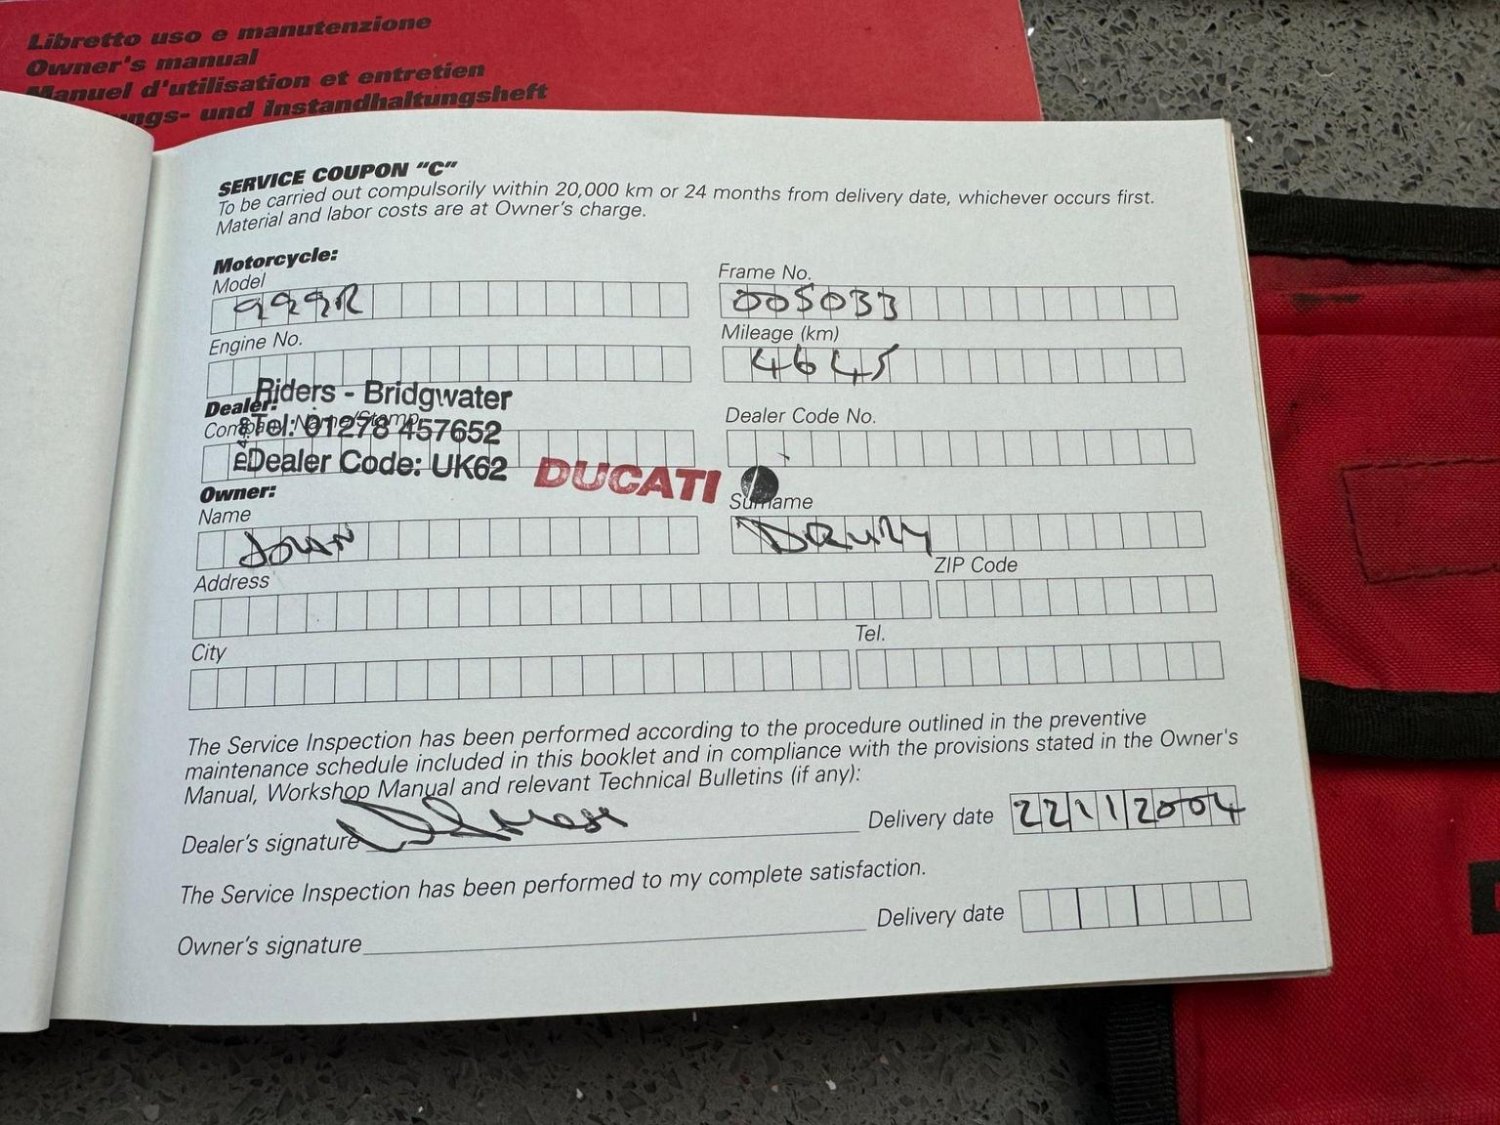 Libretto uso e manutenzione
Owner's manual
Manuel d'utilisation et entretien
ngs- und Instandhaltungsheft
SERVICE COUPON "C"
To be carried out compulsorily within 20,000 km or 24 months from delivery date, whichever occurs first.
Material and labor costs are at Owner's charge.
Motorcycle:
Model
Frame No.
999R
005033
Engine No.
Mileage (km)
4645
Riders - Bridgwater
Dealer:
Company Name/Stamp
Dealer Code No.
Tel: 01278 457652
Dealer Code: UK62
DUCATI
Owner:
Name
Surname
John
DRURY
Address
ZIP Code
City
Tel.
The Service Inspection has been performed according to the procedure outlined in the preventive
maintenance schedule included in this booklet and in compliance with the provisions stated in the Owner's
Manual, Workshop Manual and relevant Technical Bulletins (if any):
Dealer's signature
Delivery date 22112004
The Service Inspection has been performed to my complete satisfaction.
Owner's signature
Delivery date